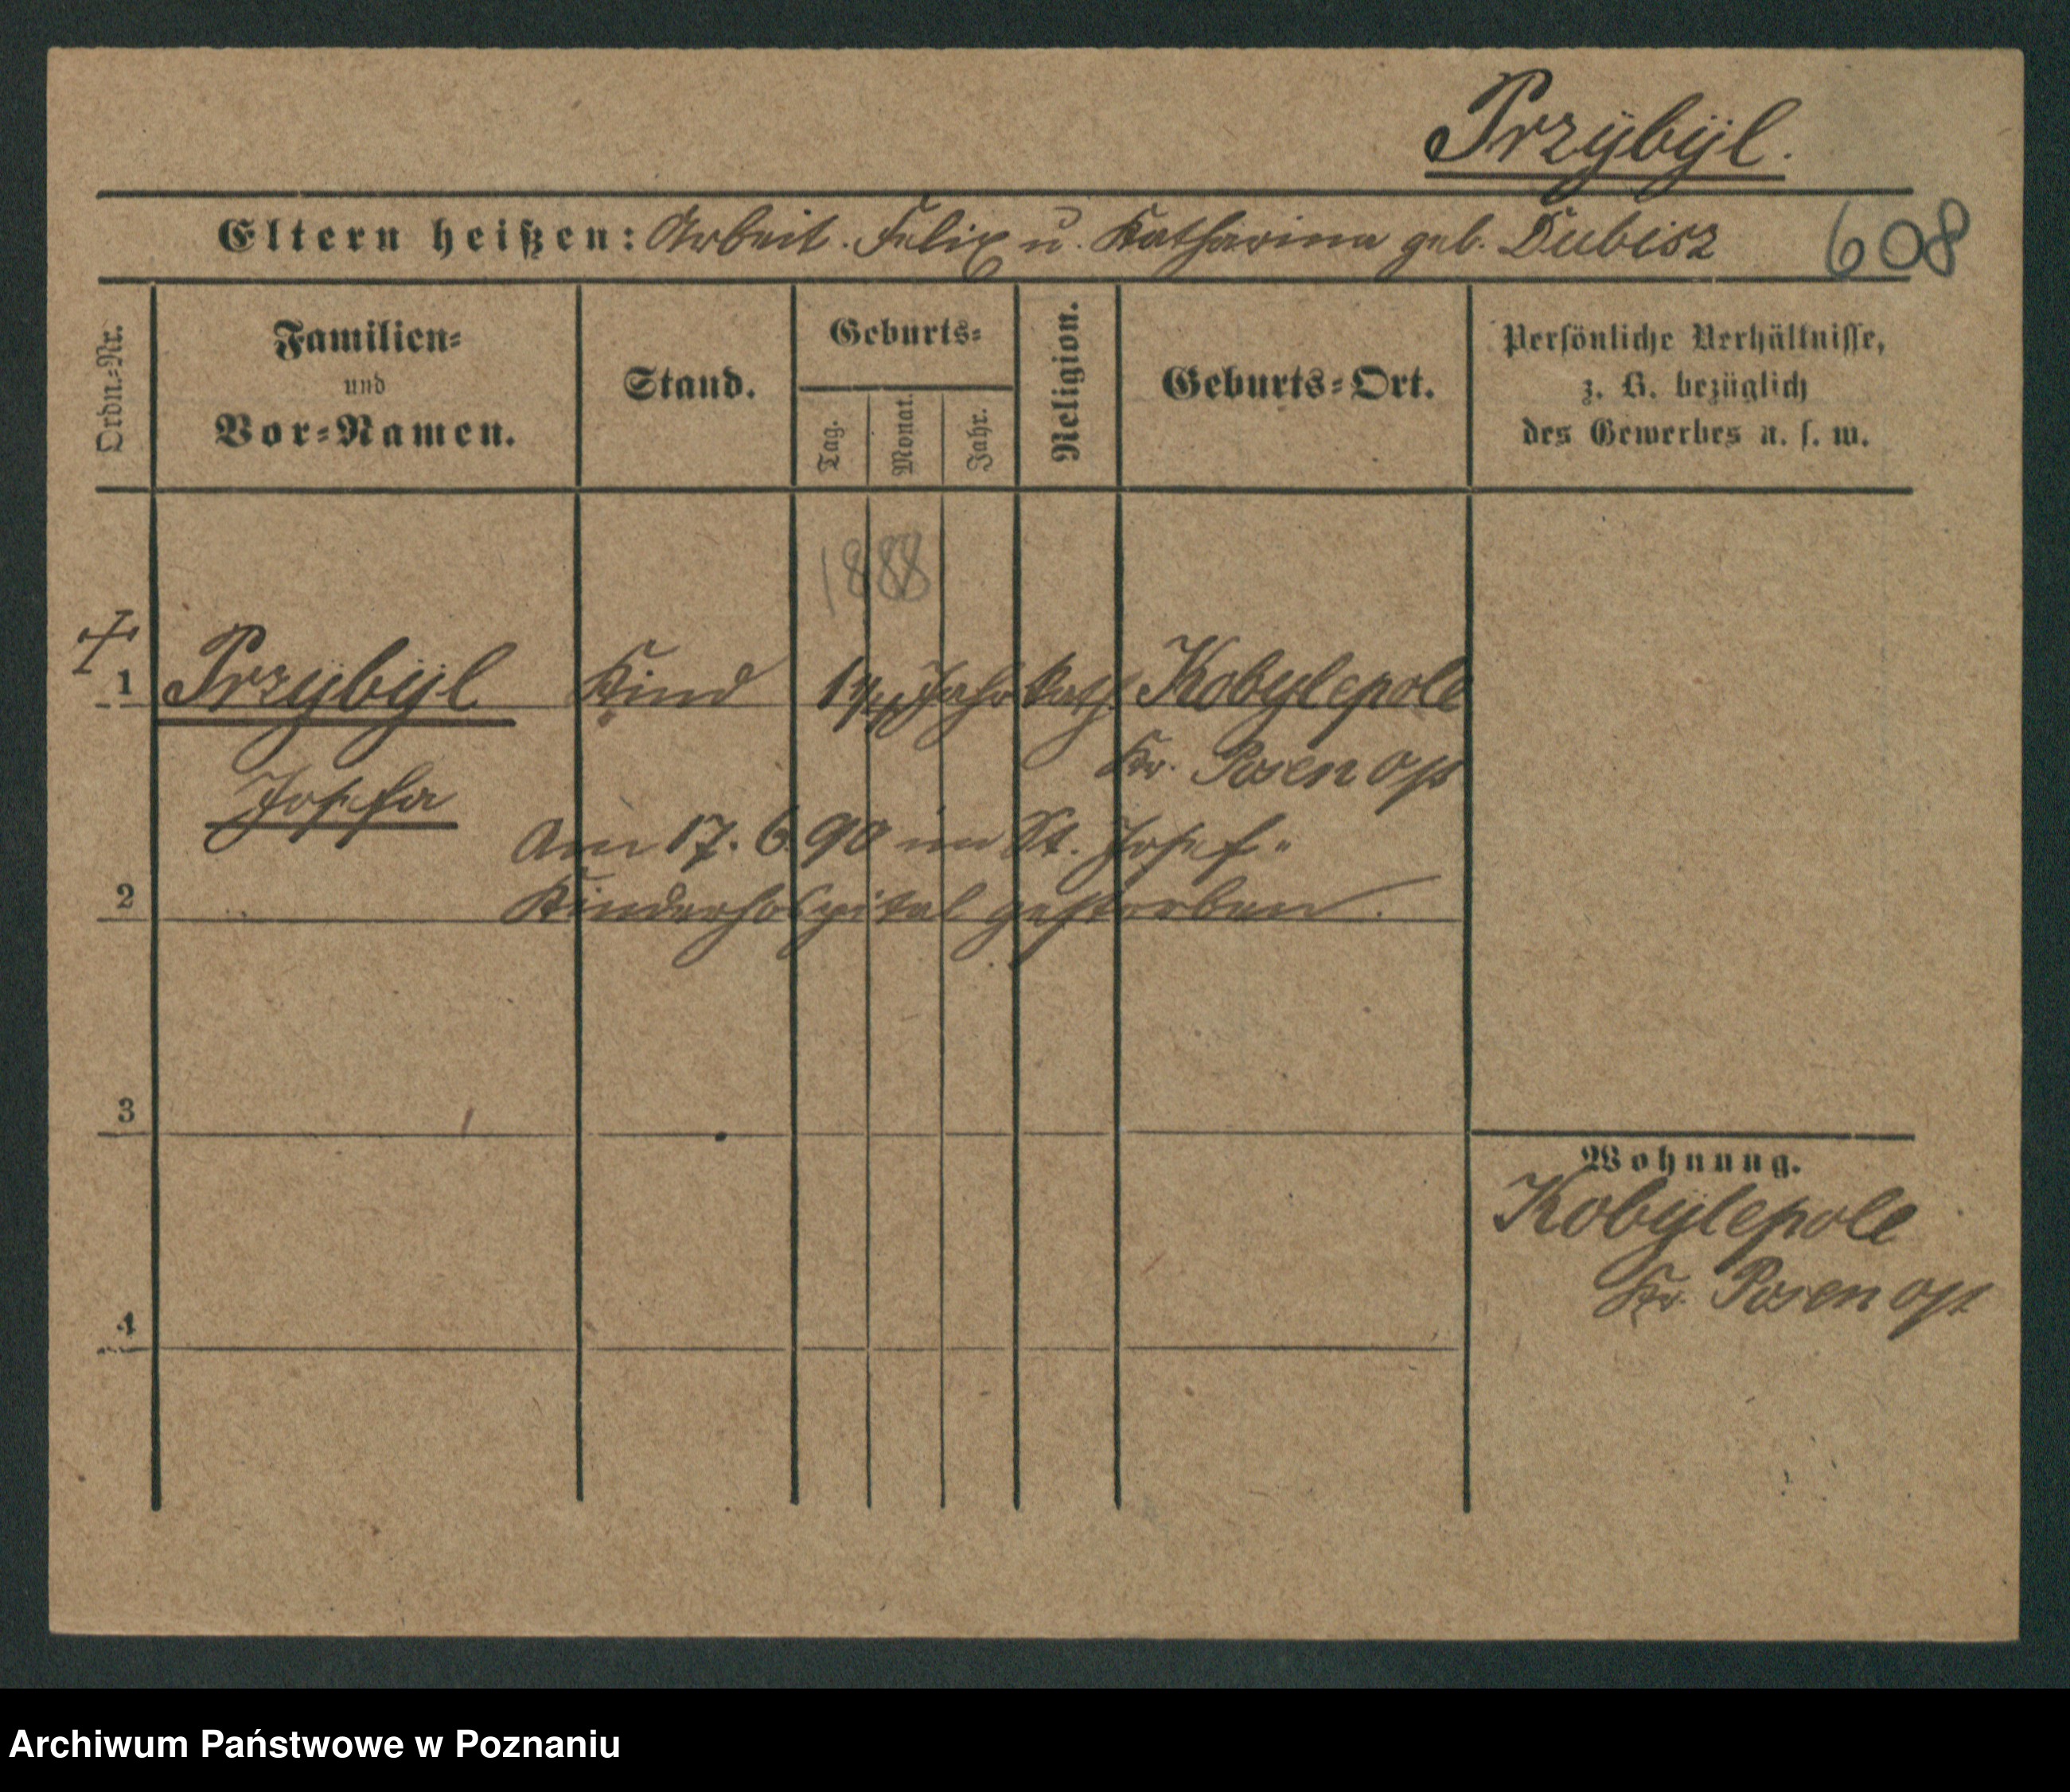 Przÿbÿl.
Eltern heißen: Arbeit. Felix u. Katharina geb. Dubisz 608
Ordn.-Nr.
Familien-
und
Vor-Namen.
Stand.
Geburts-
Tag.
Monat.
Jahr.
Religion.
Geburts-Ort.
Persönliche Verhältnisse,
z. B. bezüglich
des Gewerbes u. s. w.
1888
1 Przÿbÿl Kind 1 1/4 Jahr kath. Kobylepole
Kr. Posen Ost
Josefa
Am 17. 6. 90 im St. Josef-
2 Kinderhospital gestorben.
3
Wohnung.
Kobÿlepole
Kr. Posen Ost
4
Archiwum Państwowe w Poznaniu